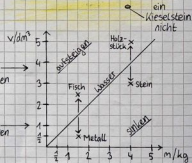 ein
Kieselstein
nicht
v/dm³
5
4
3
2
1
½
aufsteigen
Holz-
stück
Wasser
Stein
Fisch
Metall
sinken
½
1
2
3
4
5
m/kg
en
en